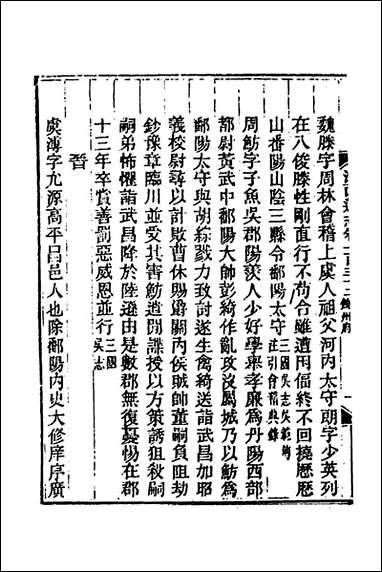 魏滕字周林會稽上虞人祖父河内太守朗字少英列
在八俊滕性剛直行不苟合雖遭困偪終不回撓歷歷
山番陽山陰三縣令鄱陽太守三國吳志吳範傳注引會稽典錄
周魴字子魚吳郡陽羨人少好學舉孝廉爲丹陽西部
都尉黃武中鄱陽大帥彭綺作亂攻沒屬城乃以魴爲
鄱陽太守與胡綜戮力攻討遂生禽綺送詣武昌加昭
義校尉尋以計敗曹休賜爵關内侯賊帥董嗣負阻劫
鈔豫章臨川並受其害魴遣間諜授以方策誘狙殺嗣
嗣弟怖懼詣武昌降於陸遜由是數郡無復憂惕在郡
十三年卒賞善罰惡威恩並行三國吳志
晉
虞溥字允源高平昌邑人也除鄱陽内史大修庠序廣